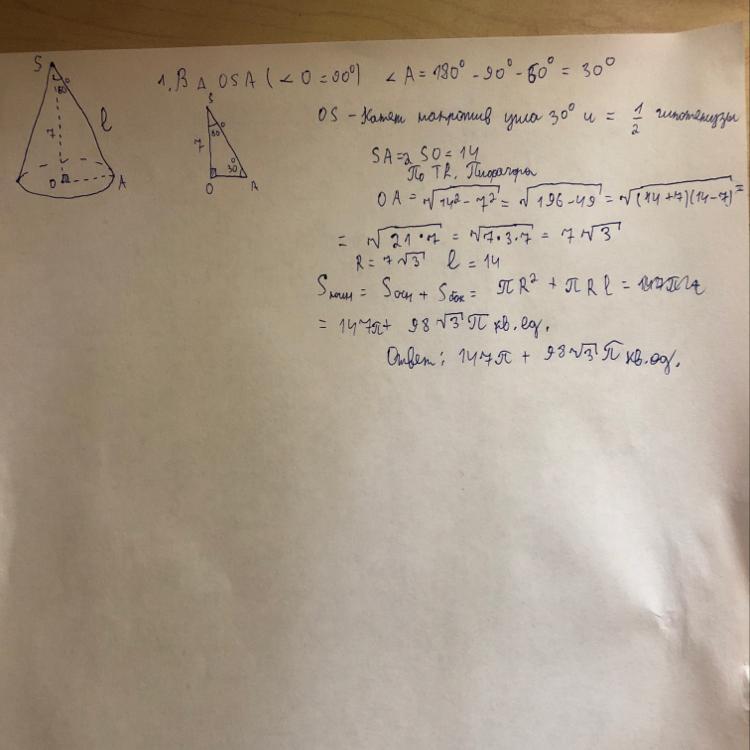 1. В △ OSA (∠O = 90°) ∠A = 180° - 90° - 60° = 30°
S
60°
7
l
O
A
S
60°
7
30°
O
A
OS - катет напротив угла 30° и = 1/2 гипотенузы
SA = 2 SO = 14
По Th. Пифагора
OA = √(14² - 7²) = √(196 - 49) = √((14 + 7)(14 - 7)) =
= √(21 · 7) = √(7 · 3 · 7) = 7√3
R = 7√3 l = 14
Sполн = Sосн + Sбок = πR² + πRl =
= 147π + 98√3 π кв. ед.
Ответ: 147π + 98√3 π кв. ед.